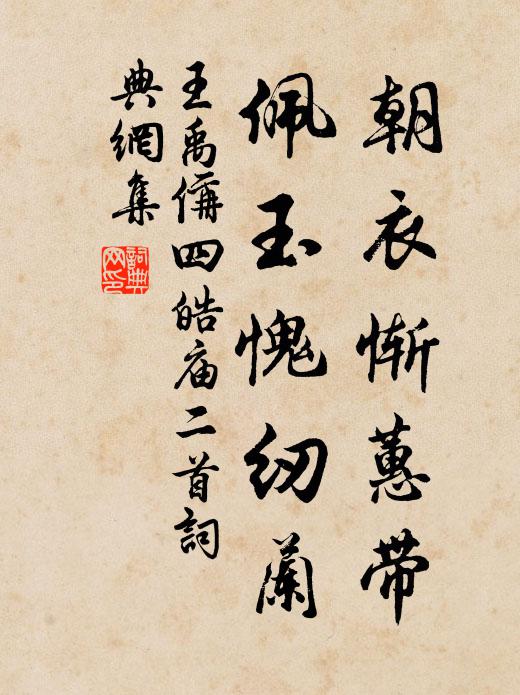 朝衣慚蕙带
佩玉愧纫蘭
王禹偁四皓庙二首詞
典網集
詞典
网印